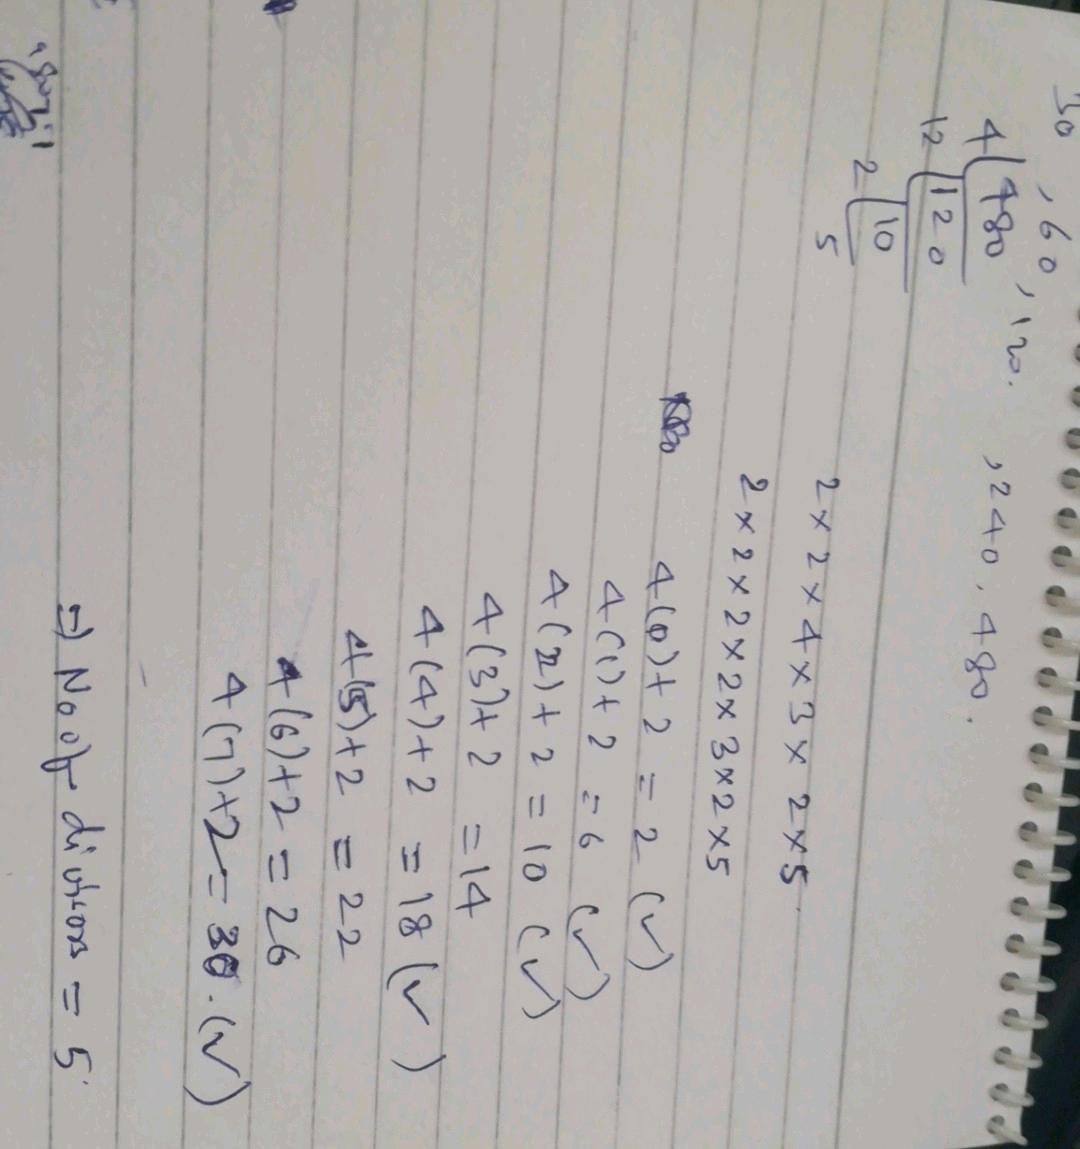 30 , 60 , 120. , 240, 480.
4 480
12 120
2 10
5
2 × 2 × 4 × 3 × 2 × 5.
2 × 2 × 2 × 2 × 3 × 2 × 5
4(0) + 2 = 2 (✓)
4(1) + 2 = 6 (✓)
4(2) + 2 = 10 (✓)
4(3) + 2 = 14
4(4) + 2 = 18 (✓)
4(5) + 2 = 22
4(6) + 2 = 26
4(7) + 2 = 30. (✓)
=) No of divisors = 5.